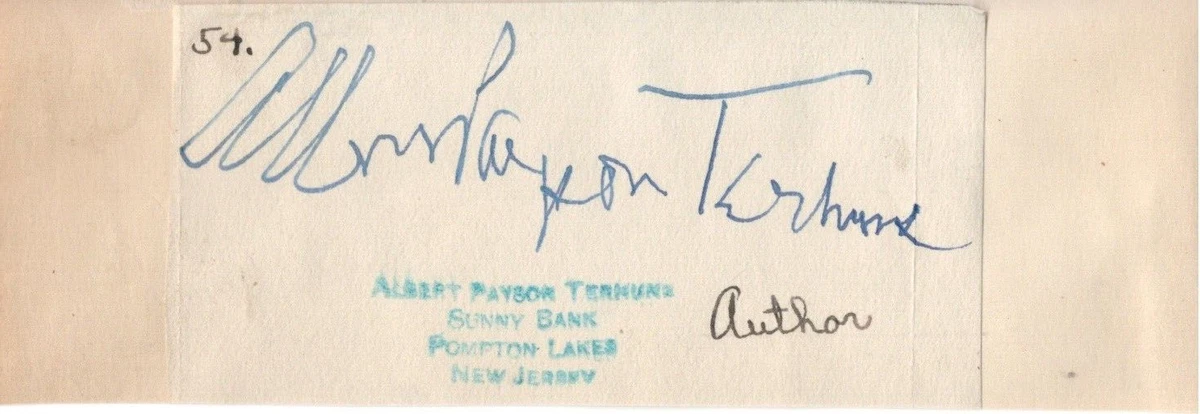 54.
Albert Payson Terhune
ALBERT PAYSON TERHUNE
SUNNY BANK
POMPTON LAKES
NEW JERSEY
Author